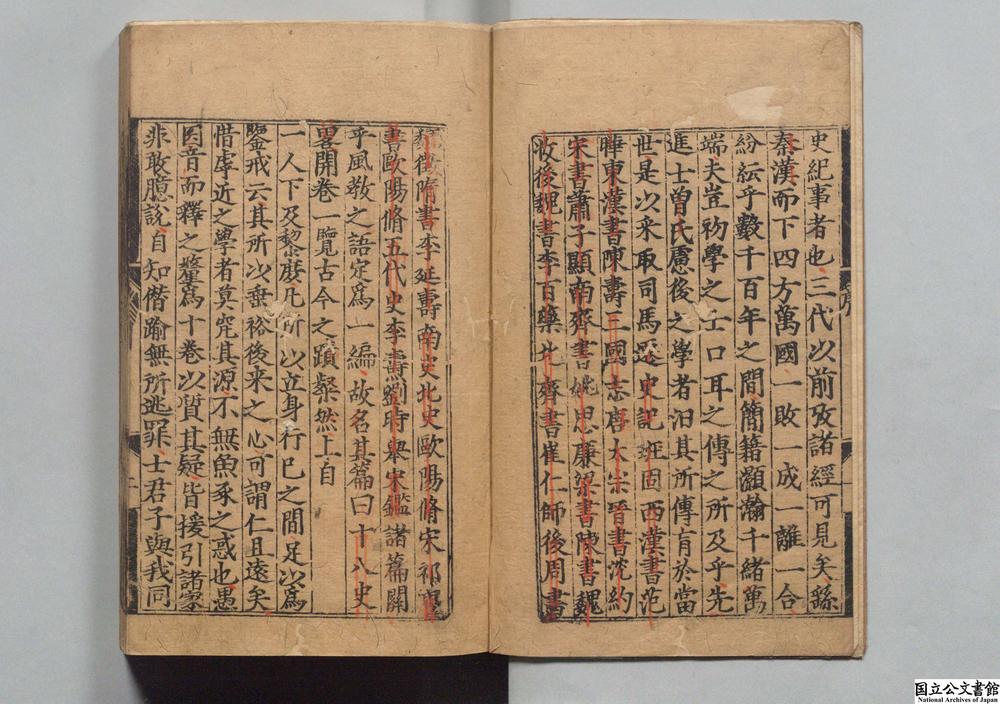 史紀事者也三代以前攷諸經可見矣繇
秦漢而下四方萬國一敗一成一離一合
紛紜乎數千百年之間簡籍灝瀚千緒萬
端夫豈初學之士口耳之傳之所及乎先
進士曽氏慮後之學者汨其所傳肓於當
世是以来取司馬遷史記班固西漢書范
曄東漢書陳壽三國志唐太宗晉書沈約
宋書蕭子顯南齊書姚思廉梁書陳書魏
收後魏書李百藥北齊書崔仁師後周書
魏徵隋書李延壽南史北史歐陽脩宋祁唐
書歐陽脩五代史李燾劉時舉宋鑑諸篇關
乎風敎之語定爲一編故名其篇曰十八史
畧開卷一覽古今之蹟粲然上自
一人下及黎庻凡所以立身行已之間足以爲
鑒戒云其所以垂裕後来之心可謂仁且遠矣
惜虖近之學者莫究其源不無魚豕之惑也愚
因音而釋之釐爲十卷以質其疑皆援引諸家
非敢臆說自知僭踰無所逃罪士君子與我同
序
国立公文書館
National Archives of Japan